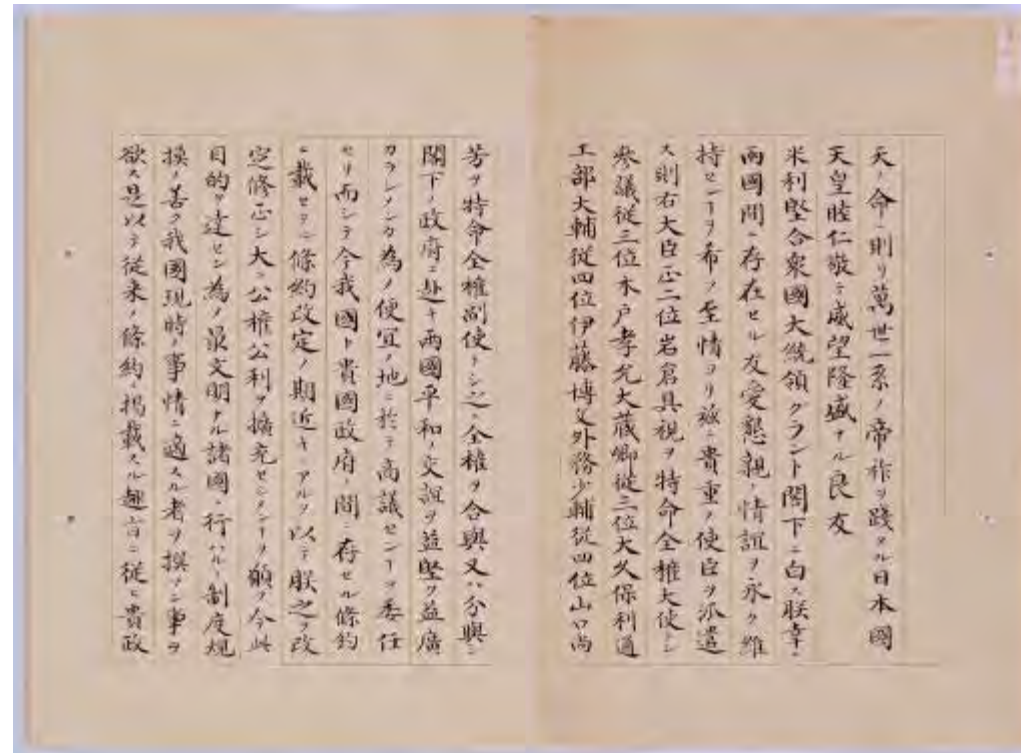 天ノ命ニ則リ萬世一系ノ帝祚ヲ践タル日本國
天皇睦仁敬テ威望隆盛ナル良友
米利堅合衆國大統領グラント閣下ニ白ス朕幸ニ
両國間ニ存在セル友愛懇親ノ情誼ヲ永ク維
持センヿヲ希フ至情ヨリ茲ニ貴重ノ使臣ヲ派遣
ス則右大臣正二位岩倉具視ヲ特命全権大使トシ
参議従三位木戸孝允大蔵卿従三位大久保利通
工部大輔従四位伊藤博文外務少輔従四位山口尚
芳ヲ特命全権副使トシ之ニ全権ヲ合與又ハ分與シ
閣下ノ政府ニ赴キ両國平和ノ交誼ヲ益堅フ益廣
カラシメンカ為ノ便宜ノ地ニ於テ商議センヿヲ委任
セリ而シテ今我國ト貴國政府ノ間ニ存セル條約
ニ載セタル條約改定ノ期近キニアルヲ以テ朕之ヲ改
定修正シ大ニ公権公利ヲ擴充セシメンヿヲ願フ今此
目的ヲ達セン為ノ最文明ナル諸國ニ行ハルヽ制度規
模ノ善ク我國現時ノ事情ニ適スル者ヲ撰マン事ヲ
欲ス是以テ従来ノ條約ニ掲載スル趣旨ニ従ヒ貴政